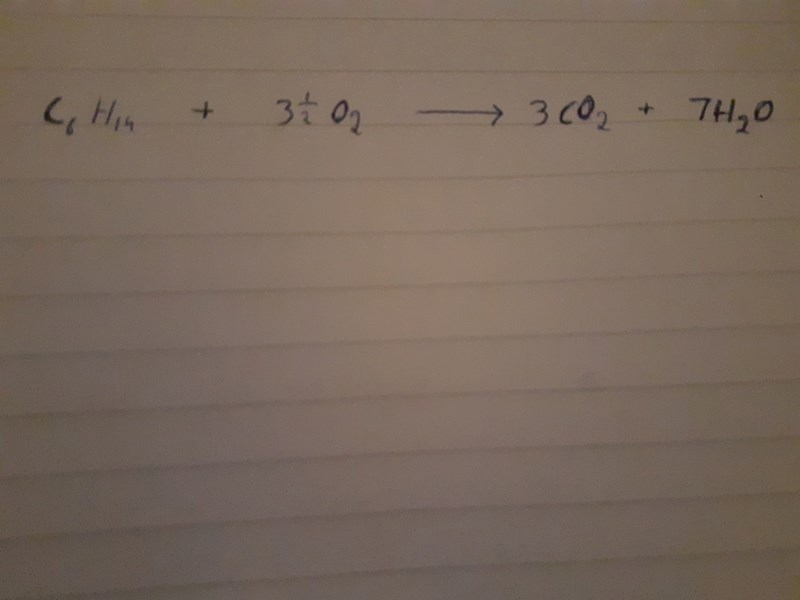 C₆H₁₄ + 3½O₂ ⟶ 3CO₂ + 7H₂O